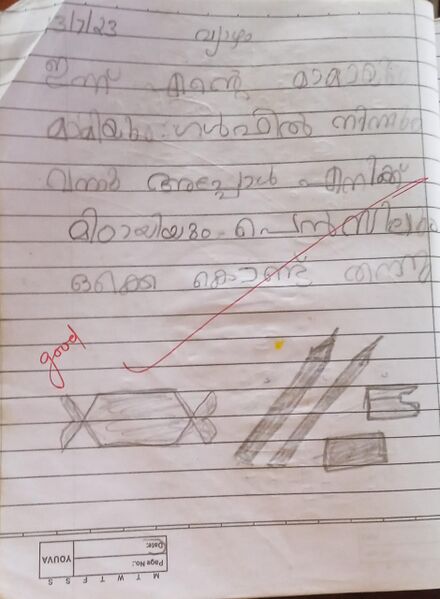 13/7/23 വ്യാഴം
ഇന്ന് എന്റെ മാമാനും
മാമിയും ഗൾഫിൽ നിന്നും
വന്നു അപ്പോൾ എനിക്ക്
മിഠായിയും പെൻസിലും
ഒക്കെ കൊണ്ട് തന്നു
good
YOUVA
Page No.:
Date:
M T W T F S S